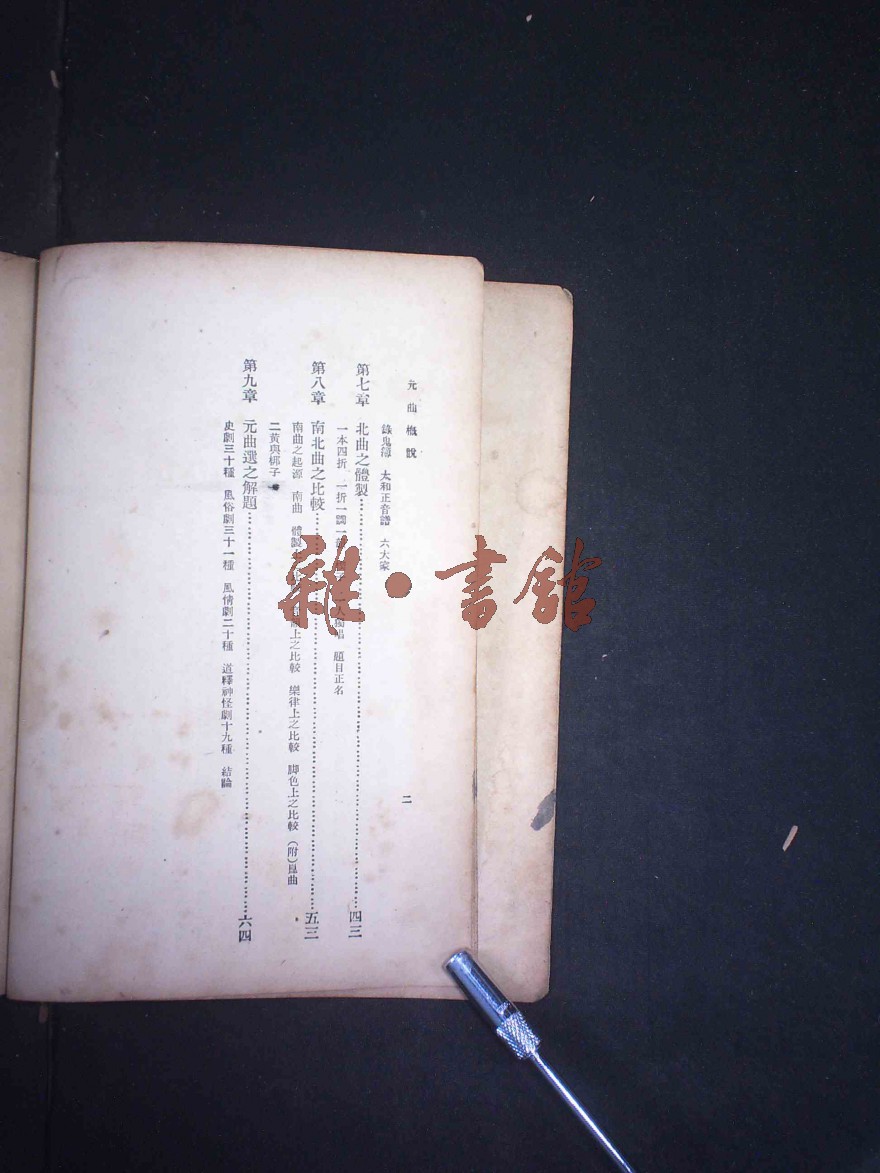 元曲概說
二
錄鬼簿 太和正音譜 六大家
第七章 北曲之體製 四三
一本四折 一折一調一 人獨唱 題目正名
第八章 南北曲之比較 五三
南曲之起源 南曲 體製 上之比較 樂律上之比較 脚色上之比較 (附)崑曲
二黃與梆子
第九章 元曲選之解題 六四
史劇三十種 風俗劇三十一種 風情劇二十種 道釋神怪劇十九種 結論
雜·書館